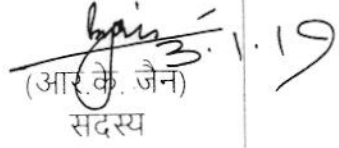 3.1.19
(आर.के. जैन)
सदस्य